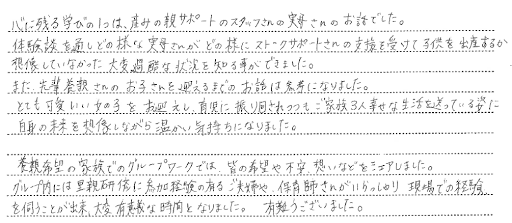 心に残る学びの1つは、産みの親サポートのスタッフさんの実母さんのお話でした。
体験談を通しどの様な実母さんがどの様にストークサポートさんの支援を受けて子供を出産するか
想像していなかった大変過酷な状況を知る事ができました。
また、先輩養親さんのお子さんを迎えるまでのお話は参考になりました。
とても可愛いい女の子をお迎えし、育児に振り回されつつもご家族3人幸せな生活を送っている姿に
自身の未来を想像しながら温かい気持ちになりました。
養親希望の家族でのグループワークでは、皆の希望や不安、想いなどをシェアしました。
グループ内には里親研修に参加経験の有るご夫婦や、保育師さんがいらっしゃり 現場での経験
を伺うことが出来、大変有意義な時間となりました。 有難うございました。